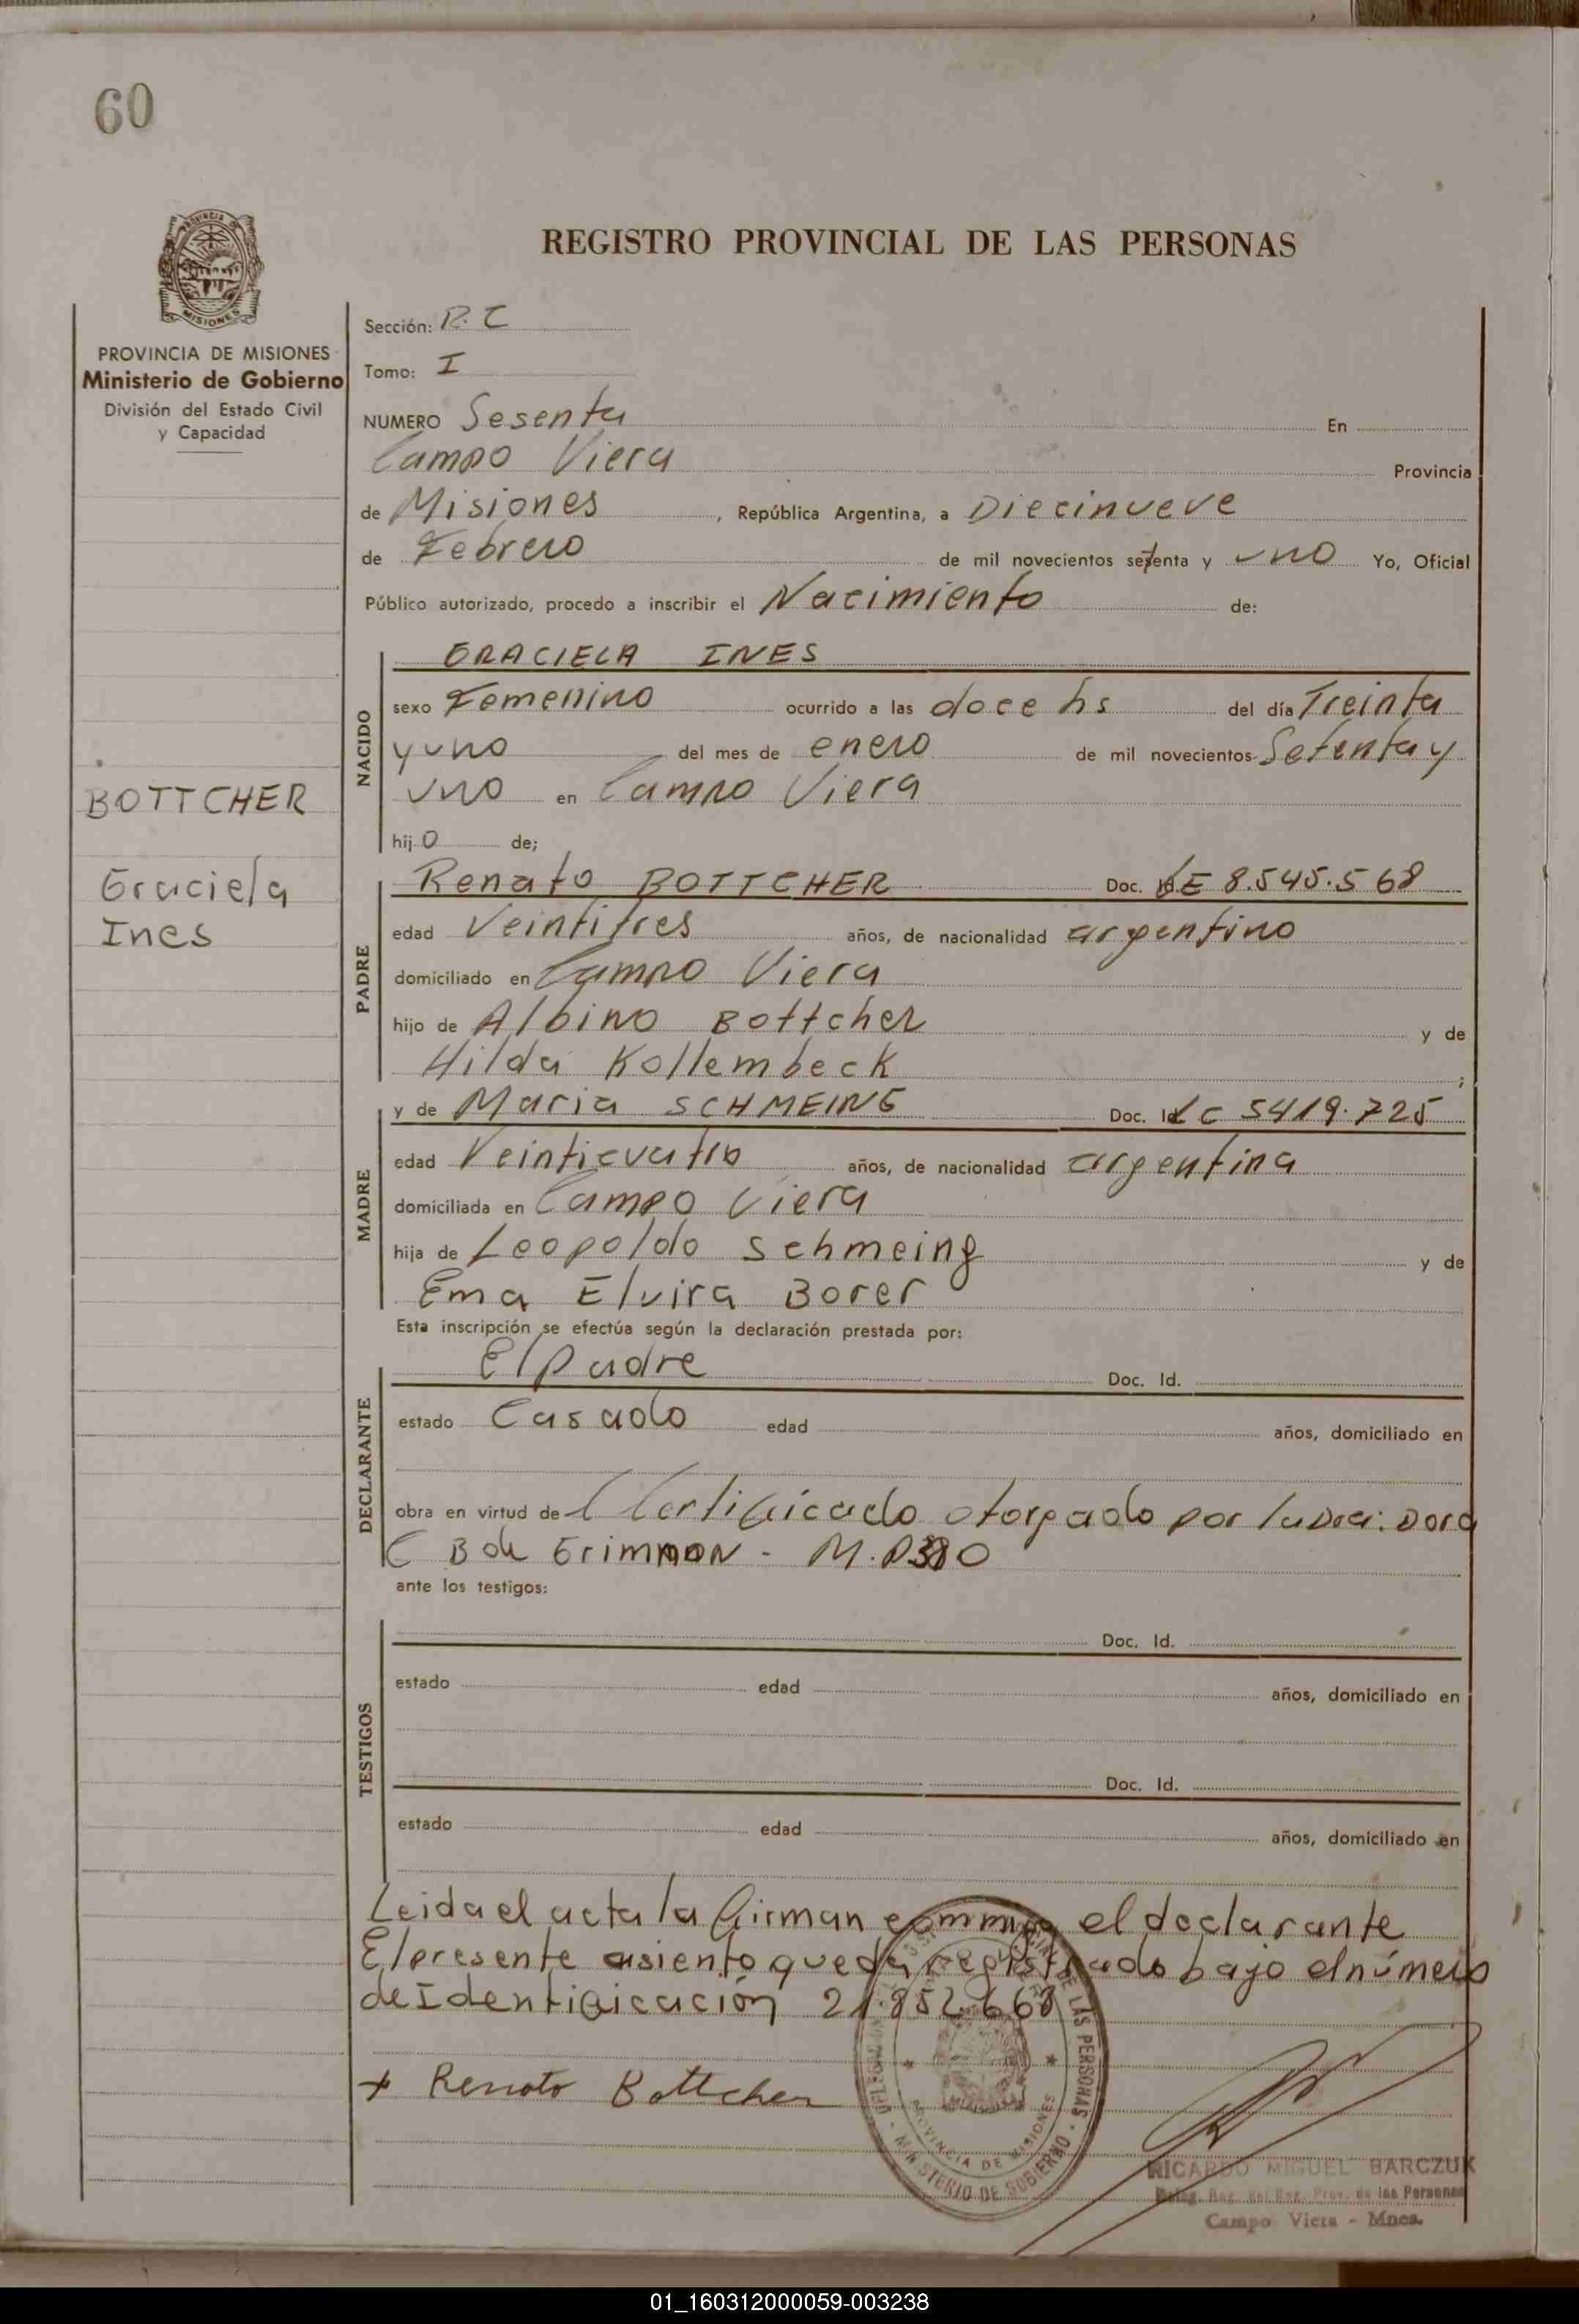 60
REGISTRO PROVINCIAL DE LAS PERSONAS
PROVINCIA DE MISIONES
Ministerio de Gobierno
División del Estado Civil
y Capacidad
BOTTCHER
Graciela
Ines
Sección: R. C
Tomo: I
NUMERO Sesenta En
Campo Viera Provincia
de Misiones, República Argentina, a Diecinueve
de Febrero de mil novecientos setenta y uno Yo, Oficial
Público autorizado, procedo a inscribir el Nacimiento de:
NACIDO
GRACIELA INES
sexo Femenino ocurrido a las doce hs del día Treinta
y uno del mes de enero de mil novecientos Setenta y
uno en Campo Viera
hijo de;
PADRE
Renato BOTTCHER Doc. LE 8.545.568
edad Veintitres años, de nacionalidad argentino
domiciliado en Campo Viera
hijo de Albino Bottcher y de
Hilda Kollembeck ;
MADRE
y de Maria SCHMEING Doc. Id LC 5419.725
edad Veinticuatro años, de nacionalidad argentina
domiciliada en Campo Viera
hija de Leopoldo Schmeing y de
Ema Elvira Borer
Esta inscripción se efectúa según la declaración prestada por:
DECLARANTE
El padre Doc. Id.
estado Casado edad años, domiciliado en
obra en virtud de Certificado otorgado por la Dra: Dora
C B de M.P
ante los testigos:
TESTIGOS
Doc. Id.
estado edad años, domiciliado en
Doc. Id.
estado edad años, domiciliado en
Leida el acta la firman commigo el declarante
El presente asiento queda registrado bajo el número
de Identificación 21.852.668
x Renato Bottcher
DE LAS PERSONAS
MINISTERIO DE GOBIERNO
PROVINCIA DE MISIONES
RICARDO MIGUEL BARCZUK
Deleg. Reg. del Reg. Prov. de las Personas
Campo Viera - Mnes.
01_160312000059-003238